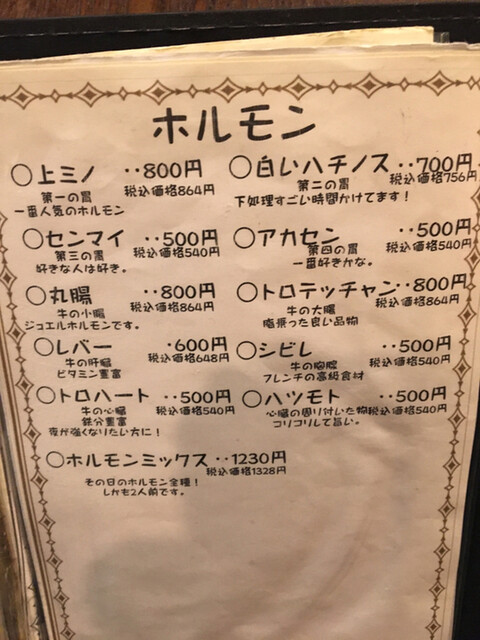 ホルモン
○上ミノ ‥800円
第一の胃 税込価格864円
一番人気のホルモン
○白いハチノス ‥700円
第二の胃 税込価格756円
下処理すごい時間かけてます!
○センマイ ‥500円
第三の胃 税込価格540円
好きな人は好き。
○アカセン ‥500円
第四の胃 税込価格540円
一番好きかな。
○丸腸 ‥800円
牛の小腸 税込価格864円
ジョエルホルモンです。
○トロテッチャン ‥800円
牛の大腸 税込価格864円
脂乗った良い品物
○レバー ‥600円
牛の肝臓 税込価格648円
ビタミン豊富
○シビレ ‥500円
牛の胸腺 税込価格540円
フレンチの高級食材
○トロハート ‥500円
牛の心臓 税込価格540円
鉄分豊富
夜が強くなりたい方に!
○ハツモト ‥500円
心臓の周り付いた物 税込価格540円
コリコリして旨い。
○ホルモンミックス ‥1230円
税込価格1328円
その日のホルモン全種!
しかも2人前です。